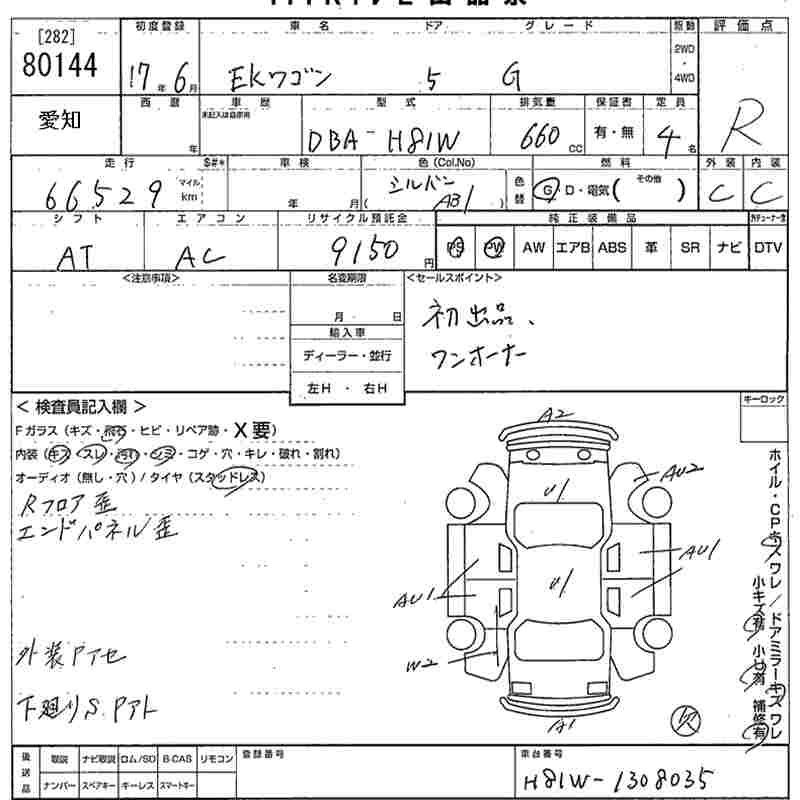 [282]
80144
愛知
初度登録
17年 6月
車名 ドア グレード
EKワゴン 5 G
駆動
2WD
・
4WD
評価点
R
西暦
年
車歴
未記入は自家用
型式
DBA-H81W
排気量
660 cc
保証書
有・無
定員
4名
走行 $#*
66529 マイル km
車検
年 月
色(Col.No)
シルバー
( AB1 )
色替
燃料
G・D・電気( その他 )
外装 内装
C C
シフト
AT
エアコン
AC
リサイクル預託金
9150 円
純正装備品
PS PW AW エアB ABS 革 SR ナビ DTV
<注意事項>
名変期限
月 日
輸入車
ディーラー・並行
左H・右H
<セールスポイント>
初出品、
ワンオーナー
<検査員記入欄>
Fガラス (キズ・飛石・ヒビ・リペア跡・X要)
内装 (キズ・スレ・汚れ・シミ・コゲ・穴・キレ・破れ・割れ)
オーディオ (無し・穴) / タイヤ (スタッドレス)
Rフロア歪
エンドパネル歪
外装Pアセ
下廻りS.Pアト
キーロック
A2
AU2
U1
AU1
U1
AU1
W2
A1
欠
ホイル・CPキズワレ / ドアミラーキズワレ
小キズ有 小凹有 補修有
後送品
取説 ナビ取説 ロム/SD B-CAS リモコン
ナンバー スペアキー キーレス スマートキー
登録番号
車台番号
H81W-1308035